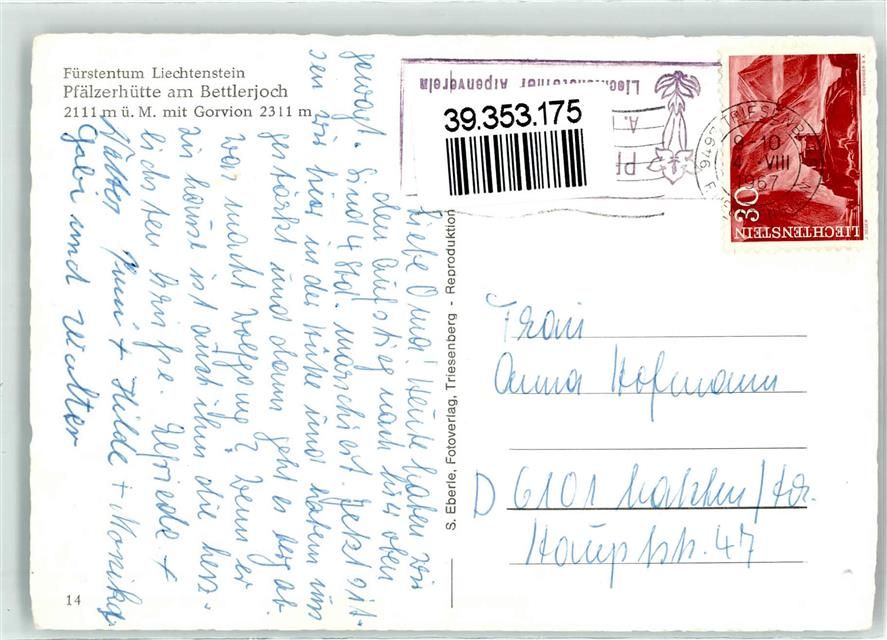 Fürstentum Liechtenstein
Pfälzerhütte am Bettlerjoch
2111 m ü. M. mit Gorvion 2311 m
Liechtensteiner Alpenverein
39.353.175
9497 TRIESENB
9-10
VIII
1967
30
LIECHTENSTEIN
Liebe Oma! Heute haben wir
den Aufstieg nach hier oben
gewagt. Sind 4 Std. marschiert. Jetzt sit-
zen wir hier in der Hütte und haben uns
gestärkt und dann geht es berg ab
was macht Wolfgang? Wenn er
zu hause ist auch ihm die herz-
lichsten Grüsse. Elfriede +
Hilde + Monika
Gabi und Walter
S. Eberle, Fotoverlag, Triesenberg - Reproduktion
Frau
Anna Hofmann
D 6101
Hauptstr. 47
14